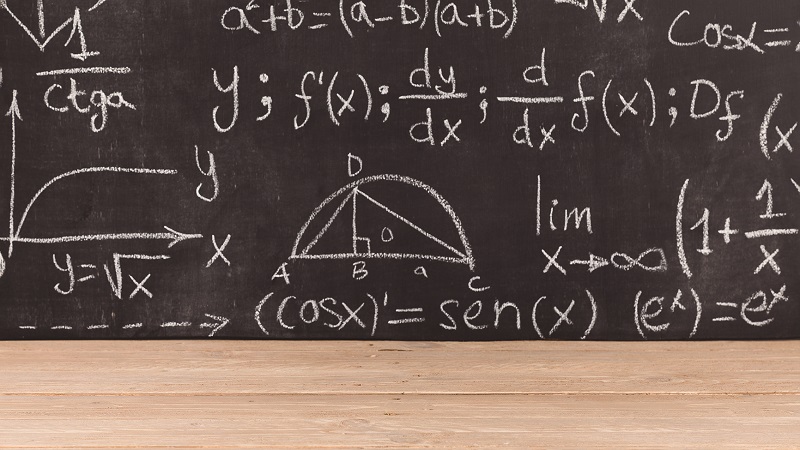 a²+b=(a-b)(a+b)
√x
Cosx=
1
ctga
y; f'(x); dy/dx; d/dx f(x); Df (x
y
x
y=√x
D
o
A B a C
lim (1+1/x
x→∞
(cosx)'=sen(x) (eˣ)=eˣ